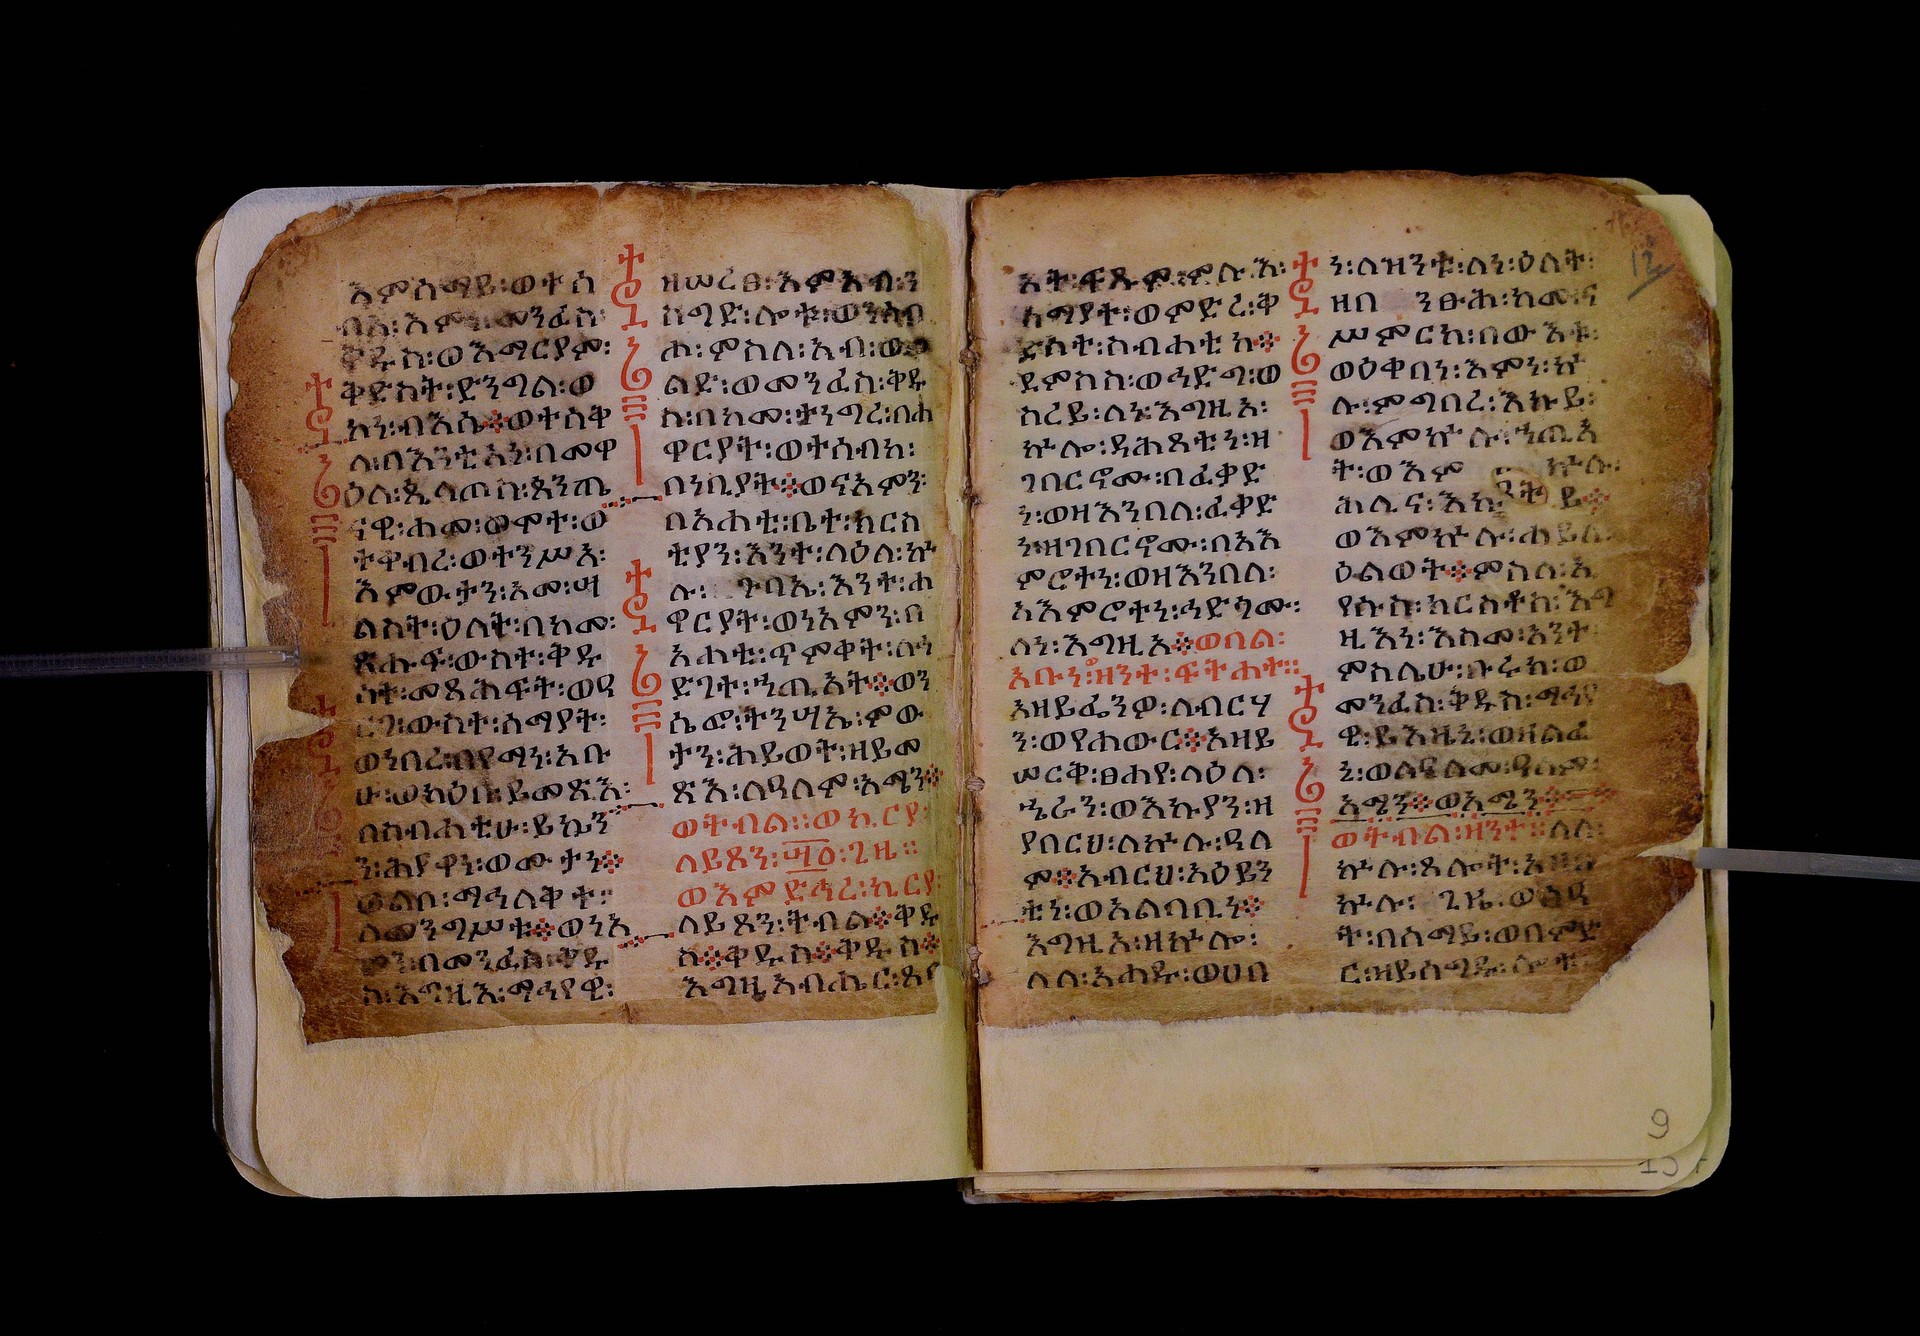 እምሰማይ፡ወተሰ
ብአ፡እምነ፡መንፈስ፡
ቅዱስ፡ወእማርያም፡
ቅድስት፡ድንግል፡ወ
ኮነ፡ብእሴ፨ወተሰቅ
ለ፡በእንቲአነ፡በመዋ
ዕለ፡ጲላጦስ፡ጰንጤ
ናዊ፡ሐመ፡ወሞተ፡ወ
ተቀብረ፡ወተንሥአ፡
እምውታን፡አመ፡ሣ
ልስት፡ዕለት፡በከመ፡
ጽሑፍ፡ውስተ፡ቅዱ
ሳት፡መጻሕፍት፡ወዓ
ርገ፡ውስተ፡ሰማያት፡
ወነበረ፡በየማነ፡አቡ
ሁ፡ወካዕበ፡ይመጽእ፡
በስብሐቲሁ፡ይኰን
ን፡ሕያዋነ፡ወሙታነ፨
ወአልቦ፡ማኅለቅተ፡፡
ለመንግሥቱ፨ወነአ
ምን፡በመንፈስ፡ቅዱ
ስ፡እግዚእ፡ማኅየዊ፡
ዘሠረፀ፡እምአብ፡ን
ስግድ፡ሎቱ፡ወንሰብ
ሖ፡ምስለ፡አብ፡ወወ
ልድ፡ወመንፈስ፡ቅዱ
ስ፡በከመ፡ተነግረ፡በሐ
ዋርያት፡ወተሰብከ፡
በነቢያት፨ወናአምን፡
በአሐቲ፡ቤተ፡ክርስ
ቲያን፡እንተ፡ላዕለ፡ኵ
ሉ፡ ጉባኤ፡እንተ፡ሐ
ዋርያት፡ወነአምን፡በ
አሐቲ፡ጥምቀት፡ለኀ
ድገተ፡ኀጢአት፨ወን
ሴፎ፡ትንሣኤ፡ምው
ታን፡ሕይወት፡ዘይመ
ጽእ፡ለዓለም፡አሜን፨
ወትብል፡፡ወኪርያ፡
ላይጾን፡
ወእምድኅረ፡ኪርያ፡
ላይጾን፡ትብል፨ቅዱ
ስ፨ቅዱስ፨ቅዱስ፨
እግዚአብሔር፡ጸባ
አት፡ፍጹም፡ምሉእ፡
ሰማያተ፡ወምድረ፡ቅ
ድሳተ፡ስብሐቲከ፨
ደምስስ፡ወኅድግ፡ወ
ስረይ፡ለነ፡እግዚኦ፡
ኵሎ፡ዳሕጸተነ፡ዘ
ገበርኖሙ፡በፈቃድ
ነ፡ወዘእንበለ፡ፈቃድ
ነ፡ዘገበርኖሙ፡በአእ
ምሮትነ፡ወዘእንበለ፡
አእምሮትነ፡ኅድጎሙ፡
ለነ፡እግዚኦ፨ወበል፡
አቡነ፡ዘንተ፡ፍትሐተ፡፡
አዘይፌንዎ፡ለብርሃ
ን፡ወየሐውር፨አዘይ
ሠርቅ፡ፀሐየ፡ላዕለ፡
ኄራን፡ወእኩያን፡ዘ
ያበርህ፡ለኵሉ፡ዓለ
ም፨አብርህ፡አዕይን
ቲነ፡ወአልባቢነ፨
እግዚኦ፡ዘኵሎ፡
ለለ፡አሐዱ፡ወሀበ
ነ፡ለዝንቱ፡ለነ፡ዕለት፡
ዘበ ንፁሕ፡ከመ፡ና
ሥምርከ፡በውእቱ፡
ወዕቀበነ፡እምነ፡ኵ
ሉ፡ምግባረ፡እኩይ፡
ወእምኵሉ፡ኀጢአ
ት፡ወእም ኵሉ፡
ሕሊና፡እኩይ፨
ወእምኵሉ፡ሐይለ፡
ዕልወት፨ምስለ፡ኢ
የሱስ፡ክርስቶስ፡እግ
ዚእነ፡እስመ፡አንተ
ምስሌሁ፡ቡሩክ፡ወ
መንፈስ፡ቅዱስ፡ማኅየ
ዊ፡ይእዜኒ፡ወዘልፈ
ኒ፡ወለዓለመ፡ዓለም፡
አሜን፨ወአሜን፨
ወትብል፡ዘንተ፡፡ለለ፡
ኵሉ፡ጸሎት፡
ኵሉ፡ ጊዜ፡
ት፡በሰማይ፡ወበምድ
ር፡ዘይሰግዱ፡ሎቱ፡
12
9